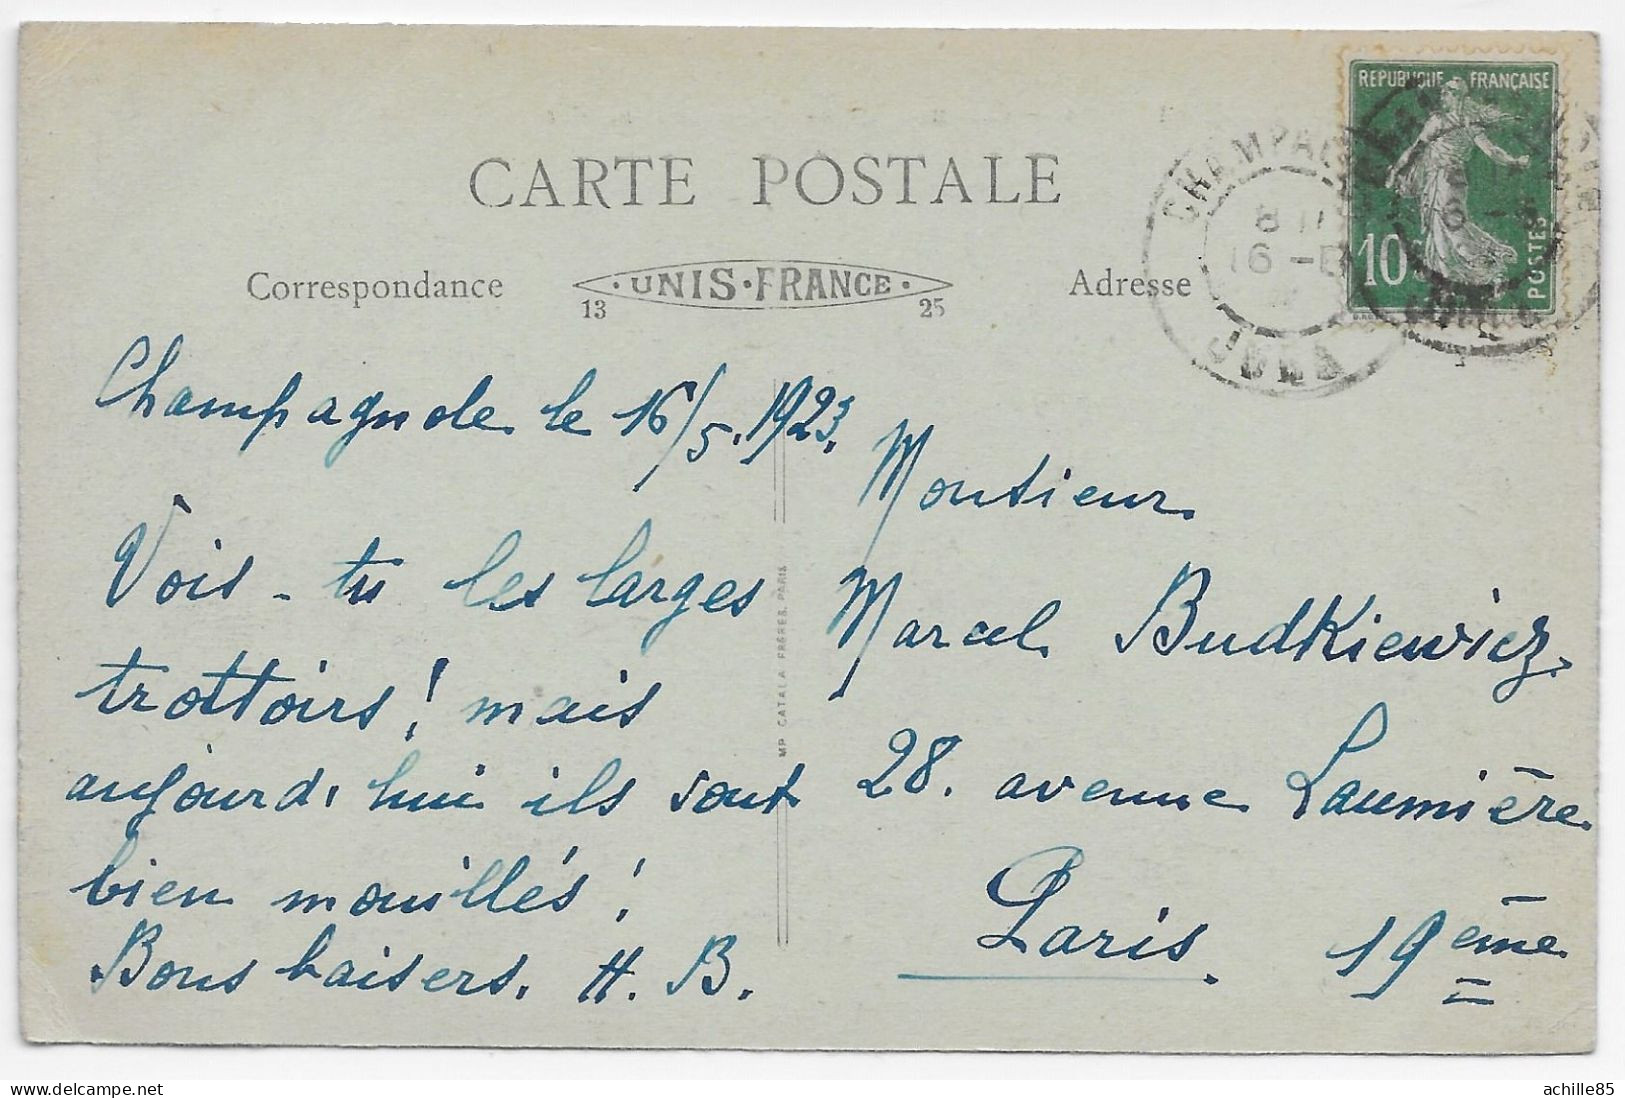 REPUBLIQUE FRANÇAISE
10c
POSTES
CHAMPAG
JURA
CARTE POSTALE
Correspondance
UNIS-FRANCE
13
25
Adresse
Champagnole le 16/5.1923.
Vois-tu les larges
trottoirs! mais
aujourd'hui ils sont
bien mouillés!
Bons baisers. H. B.
IMP. CATALA FRÈRES. PARIS
Monsieur
Marcel Budkiewicz
28. avenue Laumière
Paris. 19ème
achille85